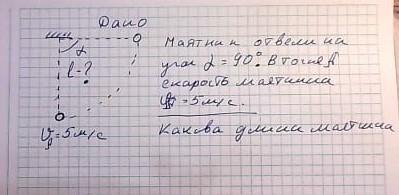 Дано
Маятник отвели на
угол α = 90°. В точке А
скорость маятника
α
l - ?
V_A = 5м/с.
V_A = 5м/с
Какова длина маятника